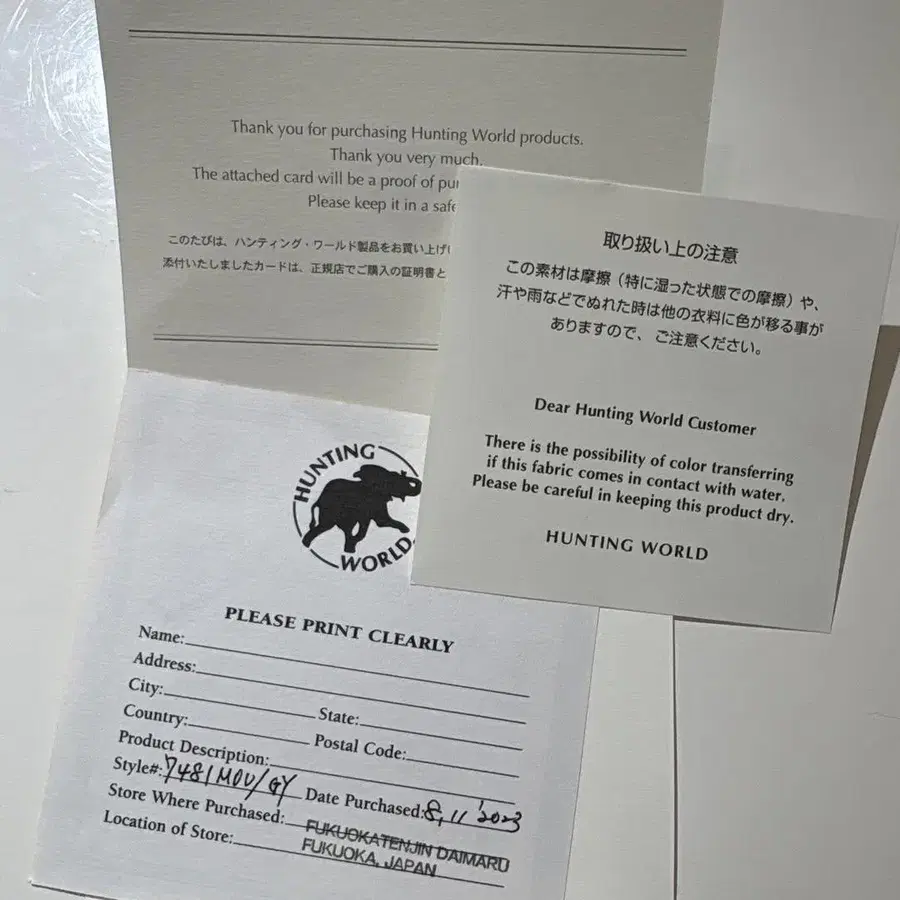 Thank you for purchasing Hunting World products.
Thank you very much.
The attached card will be a proof of
Please keep it in a safe
このたびは、ハンティング・ワールド製品をお買い上げ
添付いたしましたカードは、正規店でご購入の証明書と
取り扱い上の注意
この素材は摩擦（特に湿った状態での摩擦）や、
汗や雨などでぬれた時は他の衣料に色が移る事が
ありますので、ご注意ください。
Dear Hunting World Customer
There is the possibility of color transferring
if this fabric comes in contact with water.
Please be careful in keeping this product dry.
HUNTING WORLD
HUNTING
WORLD
PLEASE PRINT CLEARLY
Name:
Address:
City: State:
Country: Postal Code:
Product Description:
Style#: 7481MOU/GY Date Purchased: 8,11 '2023
Store Where Purchased: FUKUOKATENJIN DAIMARU
Location of Store: FUKUOKA, JAPAN